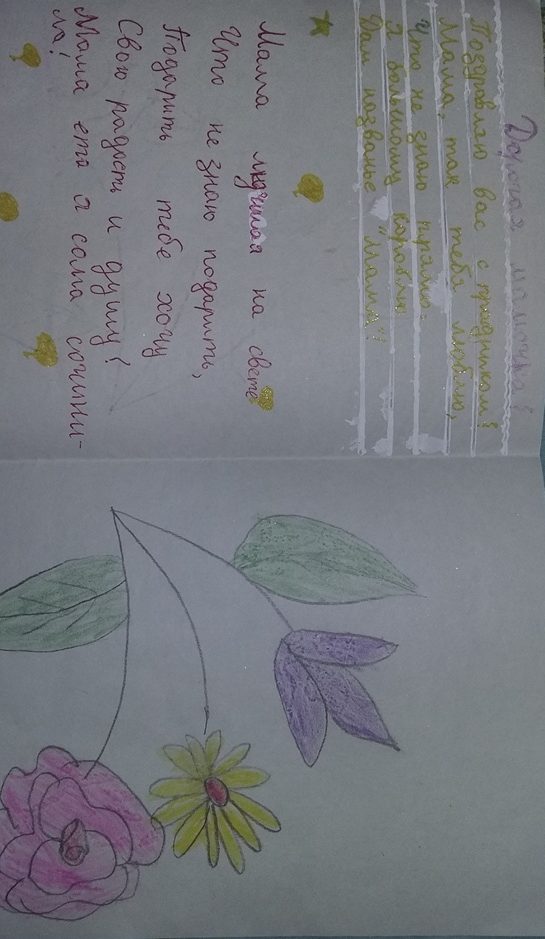 Дорогая мамочка!
Поздравляю вас с праздником!
Мама, так тебя люблю,
Что не знаю прямо:
Я большому кораблю
Дам названье "Мама"!
Мама лючшая на свете
Что не знаю подарить,
Подарить тебе хочу
Свою радость и душу!
Мама ето я сама сочини-
ла!